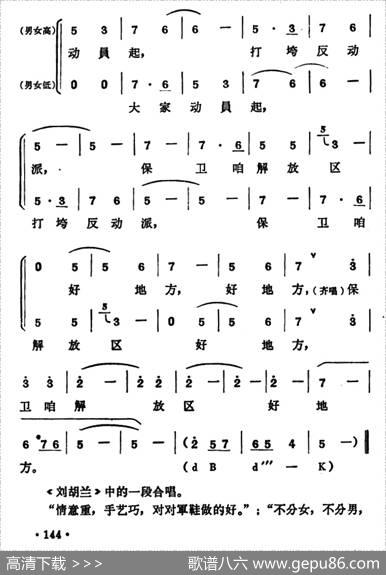 (男女高) 5 3 | 7 6 | 6 - | 7 · 6 | 5 3 | 7 6 |
动員起, 打垮反动
(男女低) 0 0 | 7 · 6 | 5 3 | 7 6 | 6 - |
大家动員起,
5 - | 5 - | 7 - | 7 · 6 | 5 5 | 5 3 - |
派, 保卫咱解放区
5 · 3 | 7 6 | 5 - | 5 - | 7 - | 7 · 6 |
打垮反动派, 保卫咱
0 5 | 5 6 | 7 - | 5 5 6 | 7 3 |
好地方, 好地方, (齐唱)保
5 5 | 5 3 - | 0 5 | 5 6 | 7 - |
解放区 好地方,
3 3 | 2 - | 2 2 | 2 - | 2 - | 2 - | 7 - |
卫咱解 放区 好地
6 #7 6 | 5 - | 5 - | (2 5 7 | 6 5 4 | 5 -) |
方。 (d B d''' — K)
《刘胡兰》中的一段合唱。
“情意重,手艺巧,对对軍鞋做的好。”;“不分女,不分男,
· 144 ·
高清下载 >>>> 歌谱八六 www.gepu86.com